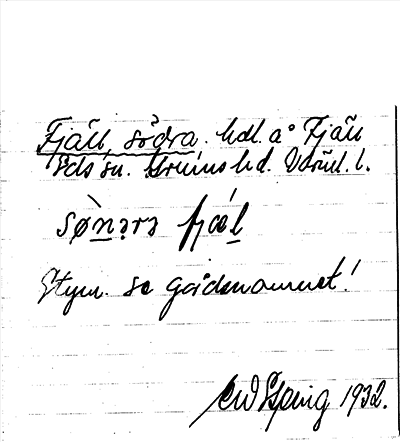 Fjäll, södra. hdl. å Fjäll
Eds sn. Grums hd. Värml. l.
sø̀nərə fjǽl
Etym. se gårdsnamnet!
1932.